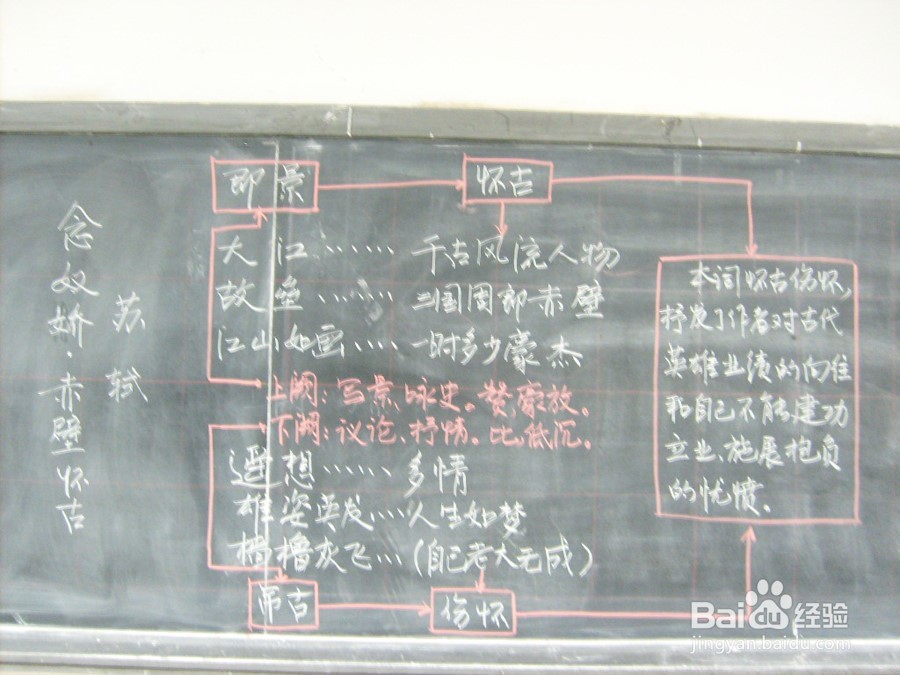 念奴娇·赤壁怀古
苏轼
即景
怀古
大江……千古风流人物
故垒……三国周郎赤壁
江山如画……一时多少豪杰
上阙:写景、咏史。赞、豪放。
下阙:议论、抒情。比、低沉。
遥想……多情
雄姿英发…人生如梦
樯橹灰飞…(自己老大无成)
吊古
伤怀
本词怀古伤怀,
抒发了作者对古代
英雄业绩的向往
和自己不能建功
立业、施展抱负
的忧愤.
Baidu经验
jingyan.baidu.com